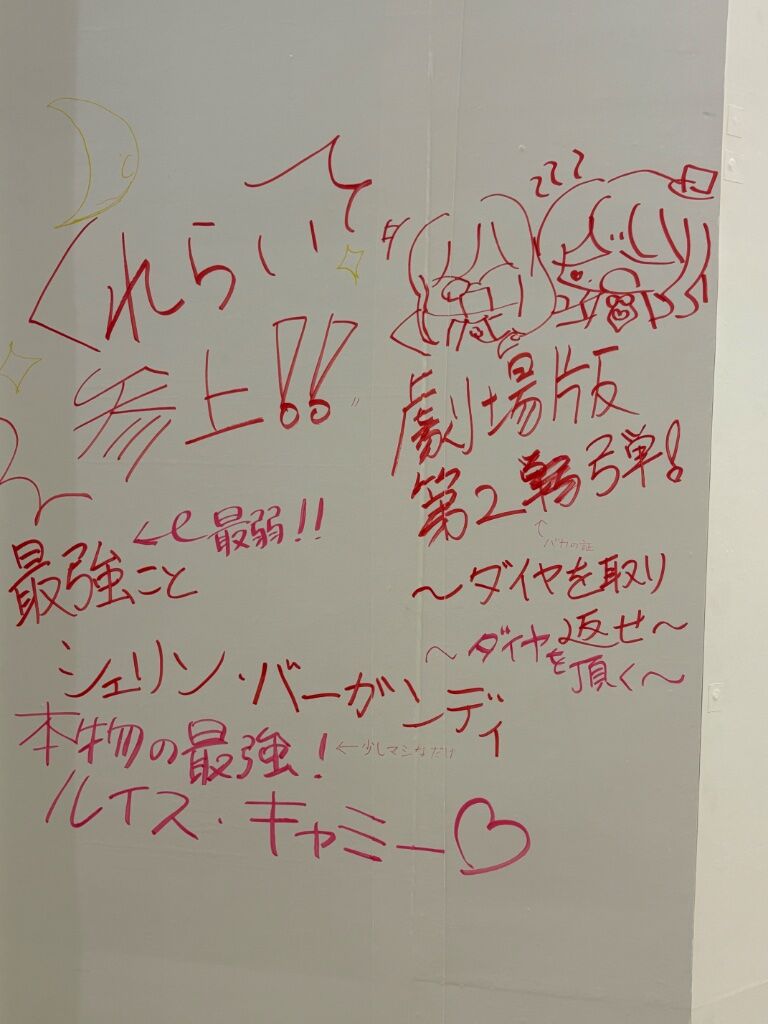 くれらいて
参上!!
最強こと
←最弱!!
シェリン・バーガンディ
本物の最強!
←少しマシなだけ
ルイス・キャミー♡
zzz
劇場版
第2弾!
↑
バカの証
〜ダイヤを取り
返せ〜
〜ダイヤを
頂く〜